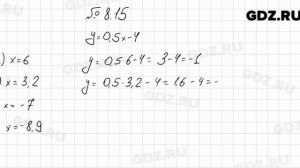 GDZ.RU
№ 8.15
y=0,5x-4
) x=6 y=0,5·6-4= 3-4=-1
x=3,2 y=0,5·3,2-4=1,6-4=-
x=-7
x=-8,9